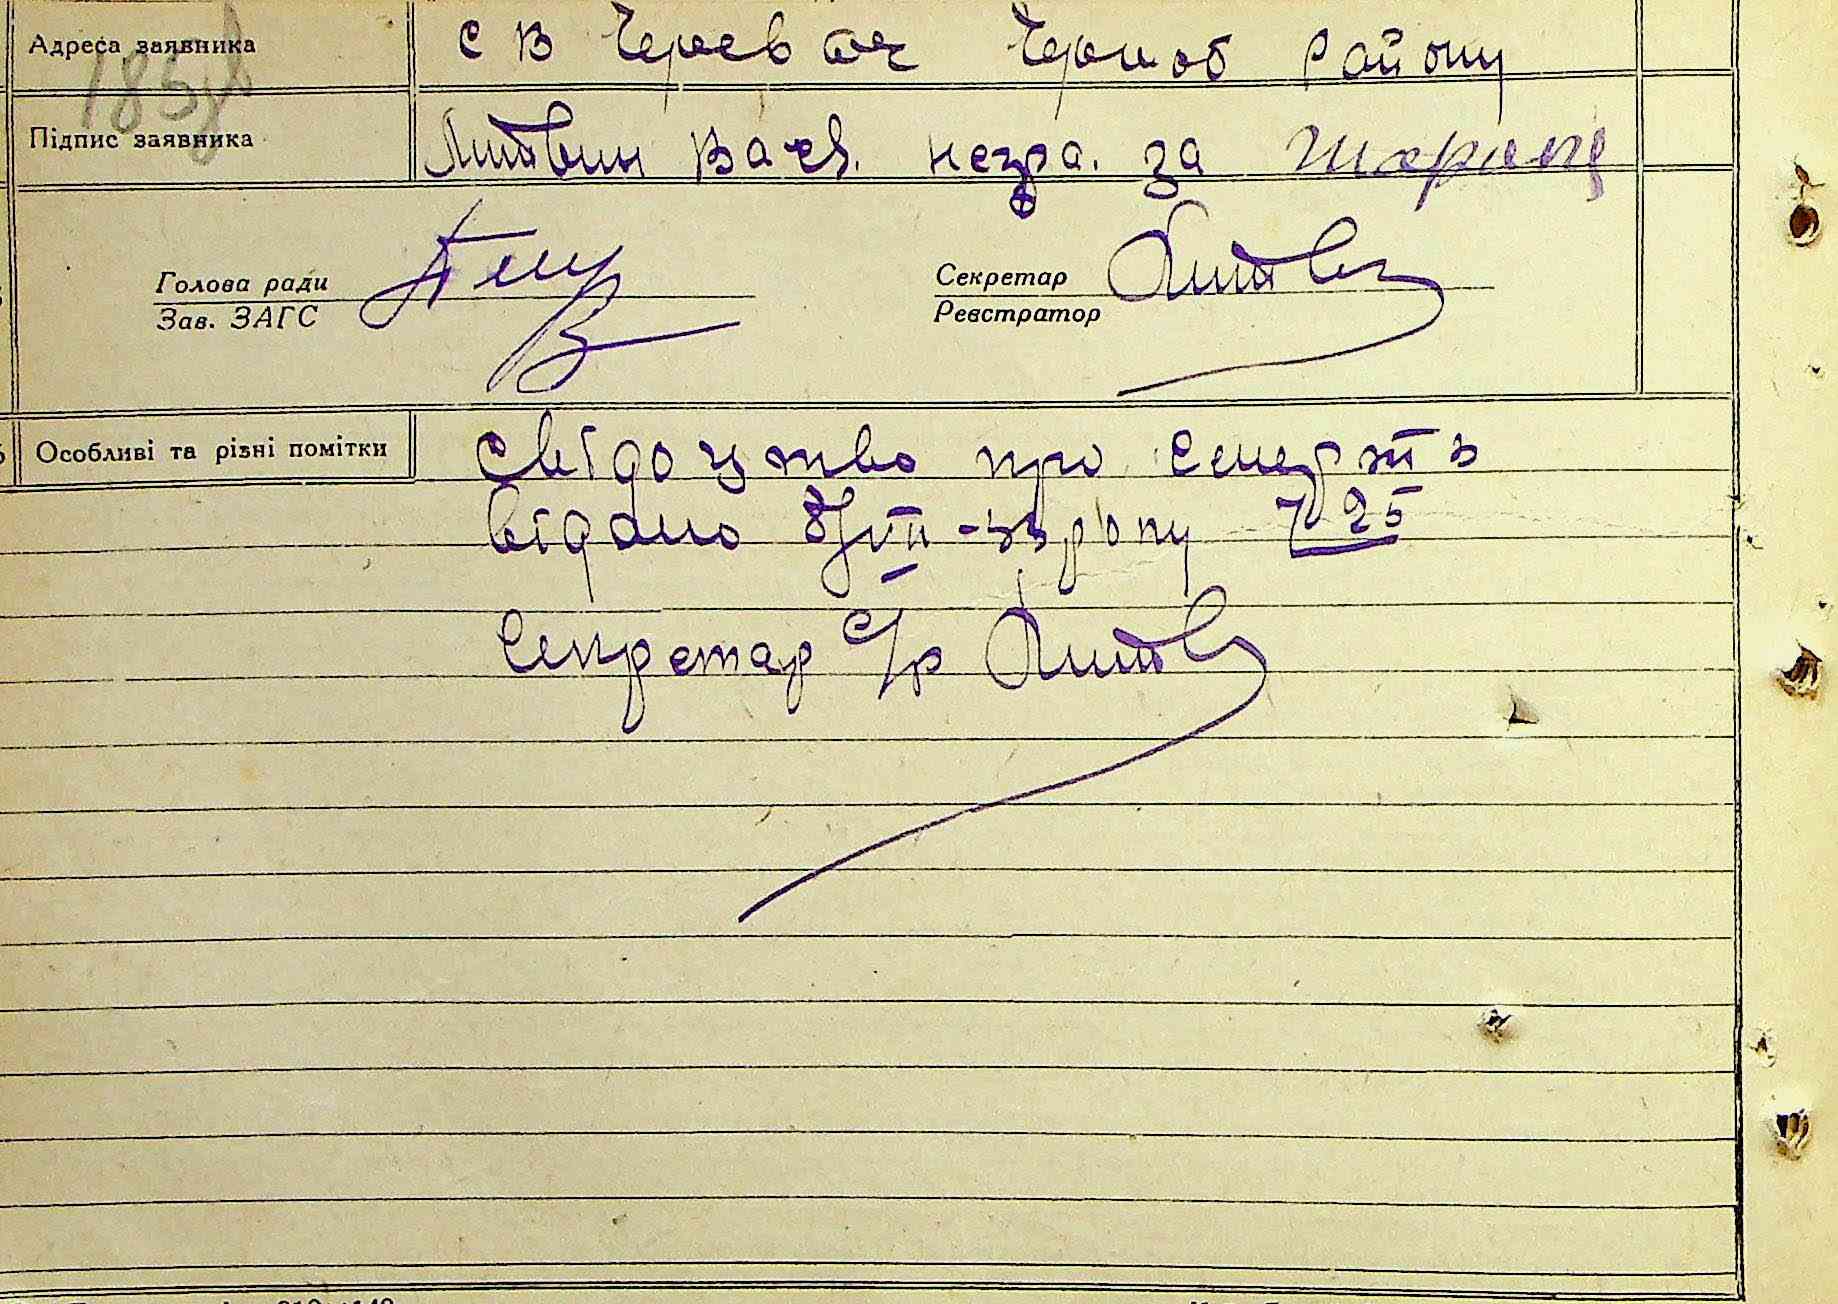 Адреса заявника с В Черевач Чорноб району
185
Підпис заявника Литвин Вас. за
Голова ради
Зав. ЗАГС
Секретар Литв
Реєстратор
Особливі та різні помітки свідоцтво про смерть
відано 8/VII-33 року №25
Секретар с/р Литв